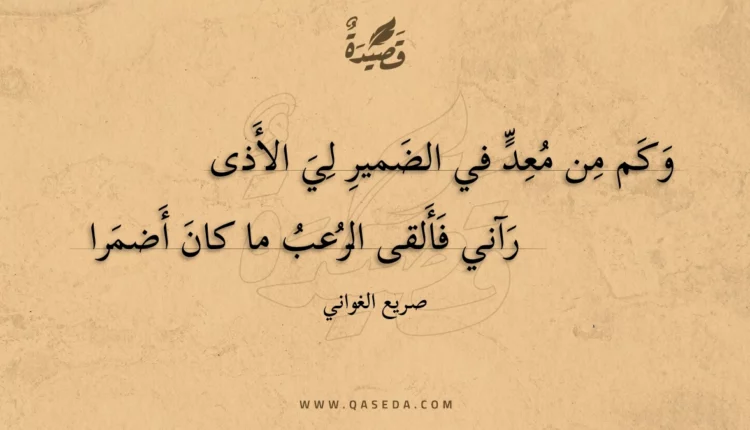 قَصِيْدَةٌ
وَكَم مِن مُعِدٍّ في الضَميرِ لِيَ الأَذى
رَآني فَأَلقى الرُعبُ ما كانَ أَضمَرا
صريع الغواني
WWW.QASEDA.COM